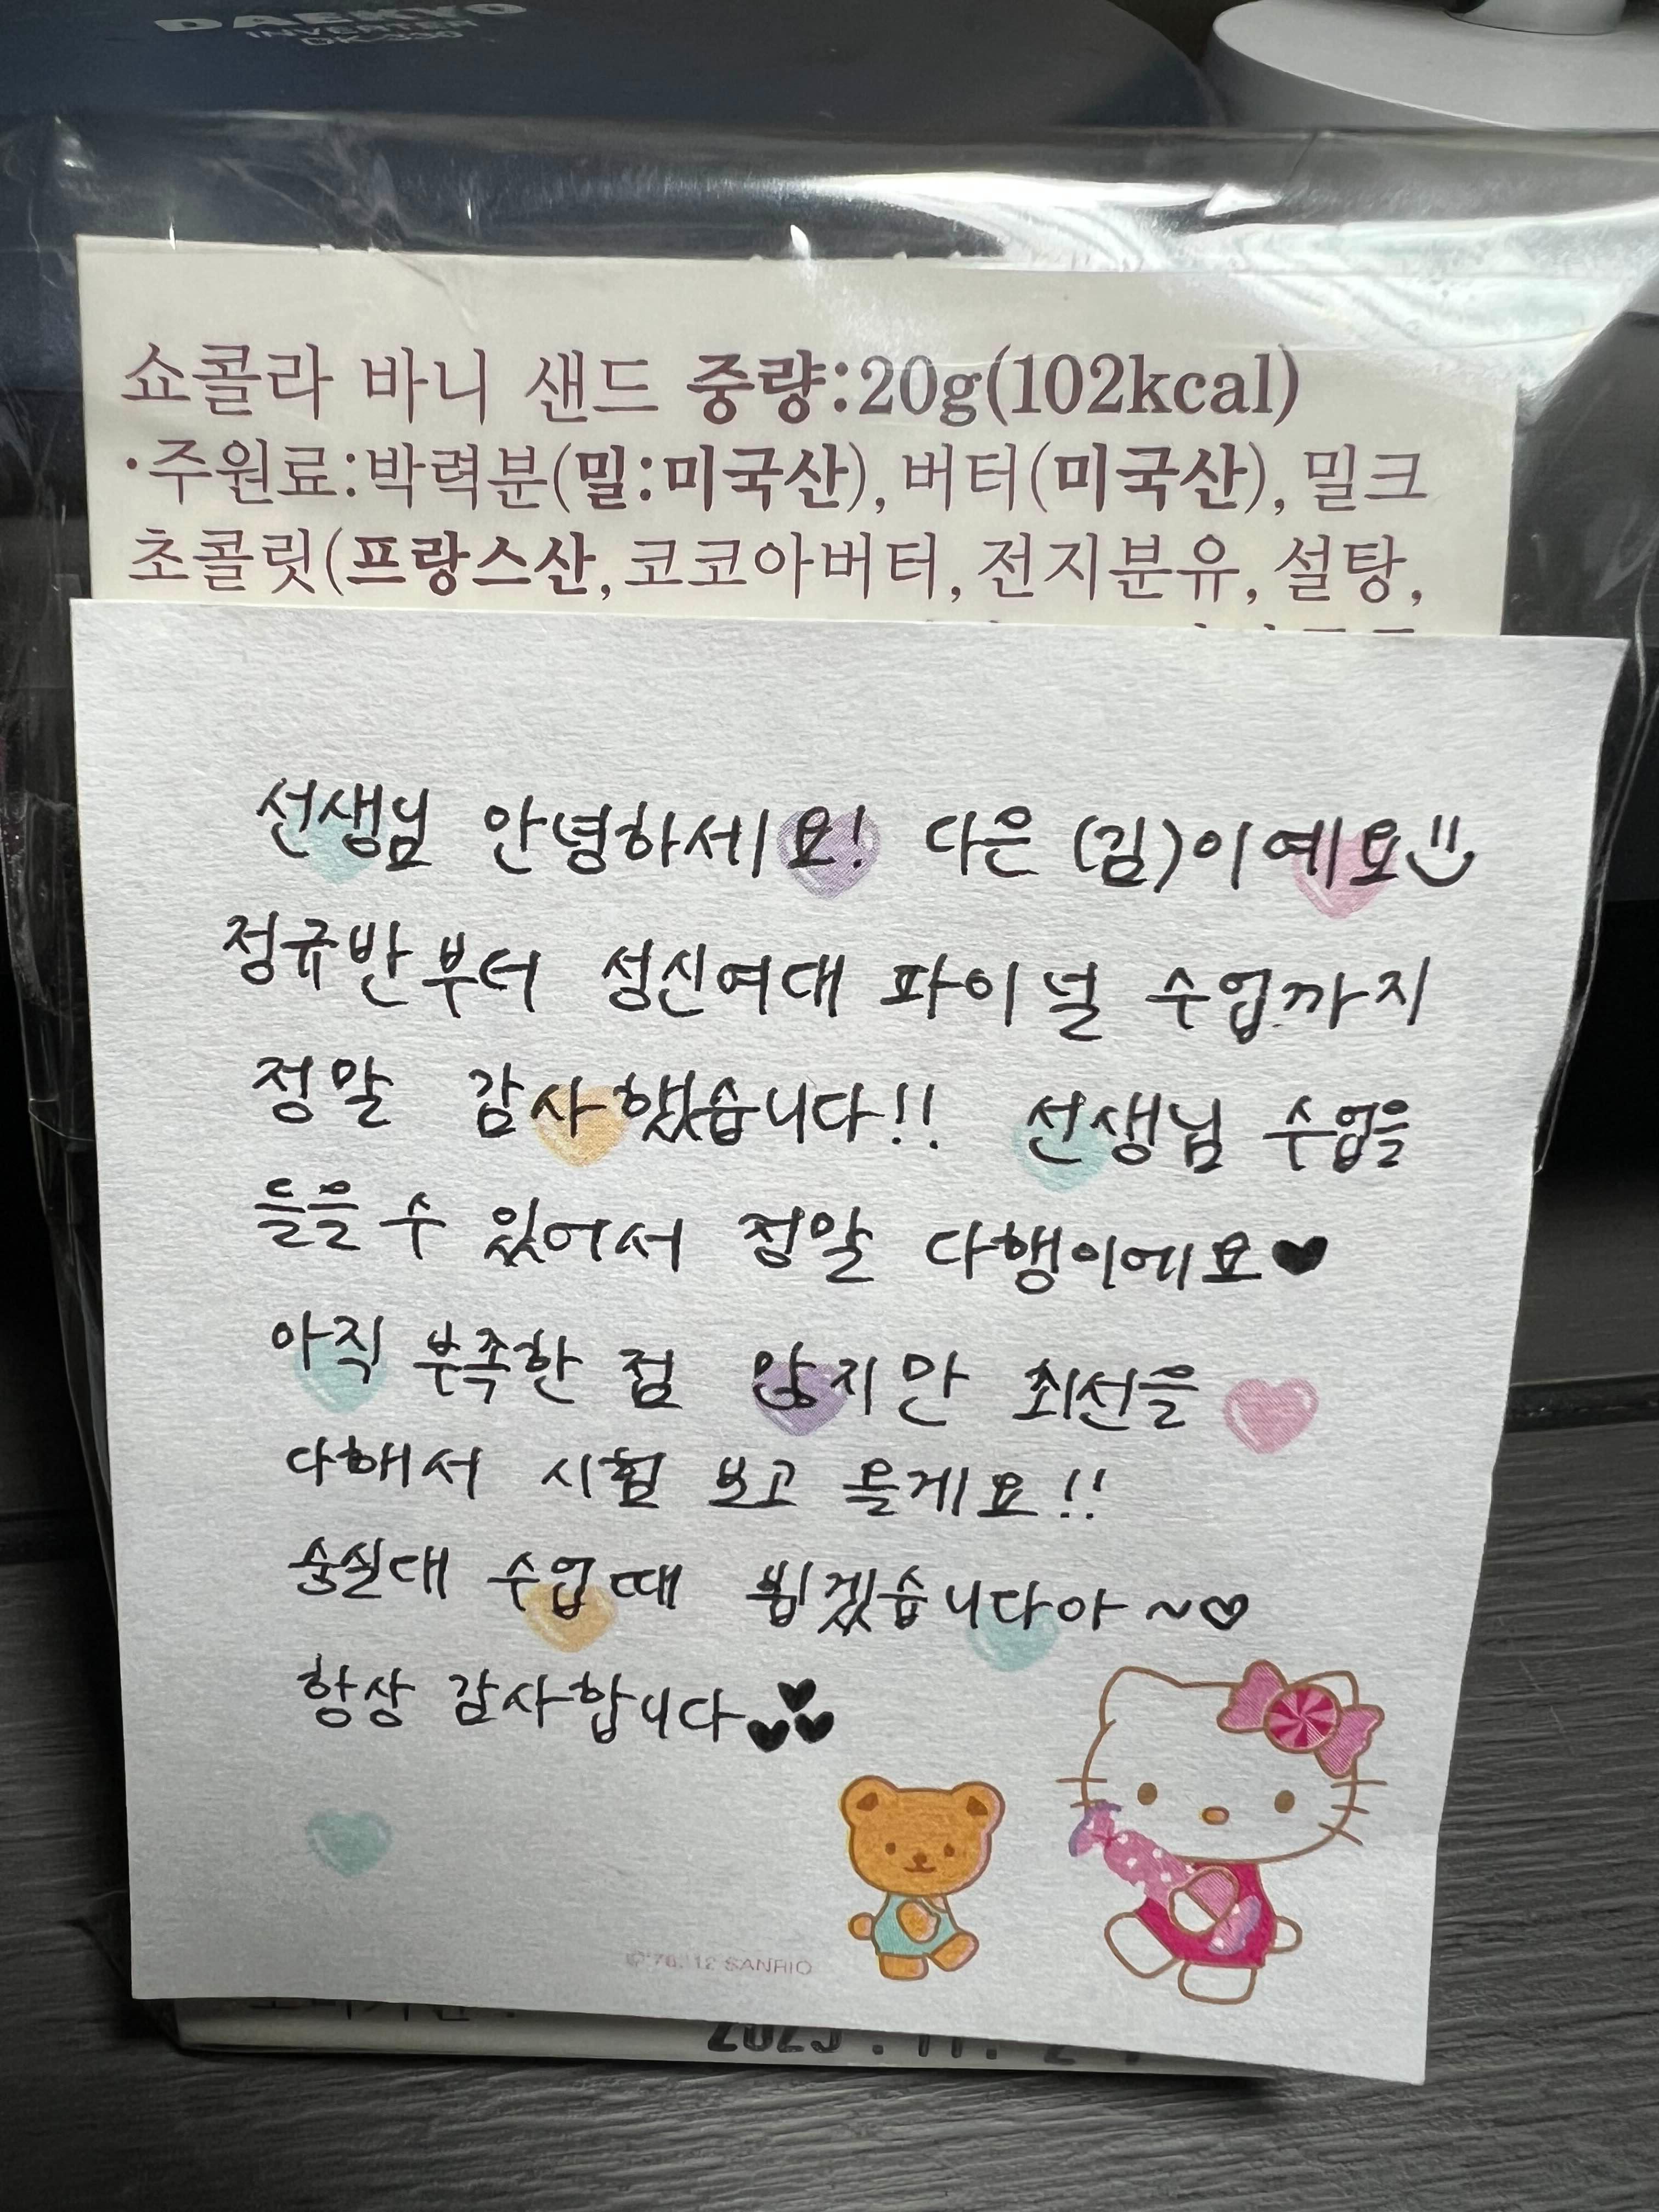 DAEKYO
INVERTER
쇼콜라 바니 샌드 중량:20g(102kcal)
·주원료:박력분(밀:미국산), 버터(미국산), 밀크
초콜릿(프랑스산, 코코아버터, 전지분유, 설탕,
선생님 안녕하세요! 다은 (김)이예요
정규반부터 성신여대 파이널 수업까지
정말 감사했습니다!! 선생님 수업을
들을 수 있어서 정말 다행이에요♥
아직 부족한 점 많지만 최선을
다해서 시험 보고 올게요!!
숭실대 수업때 뵙겠습니다아~♡
항상 감사합니다
©'76.'12 SANRIO